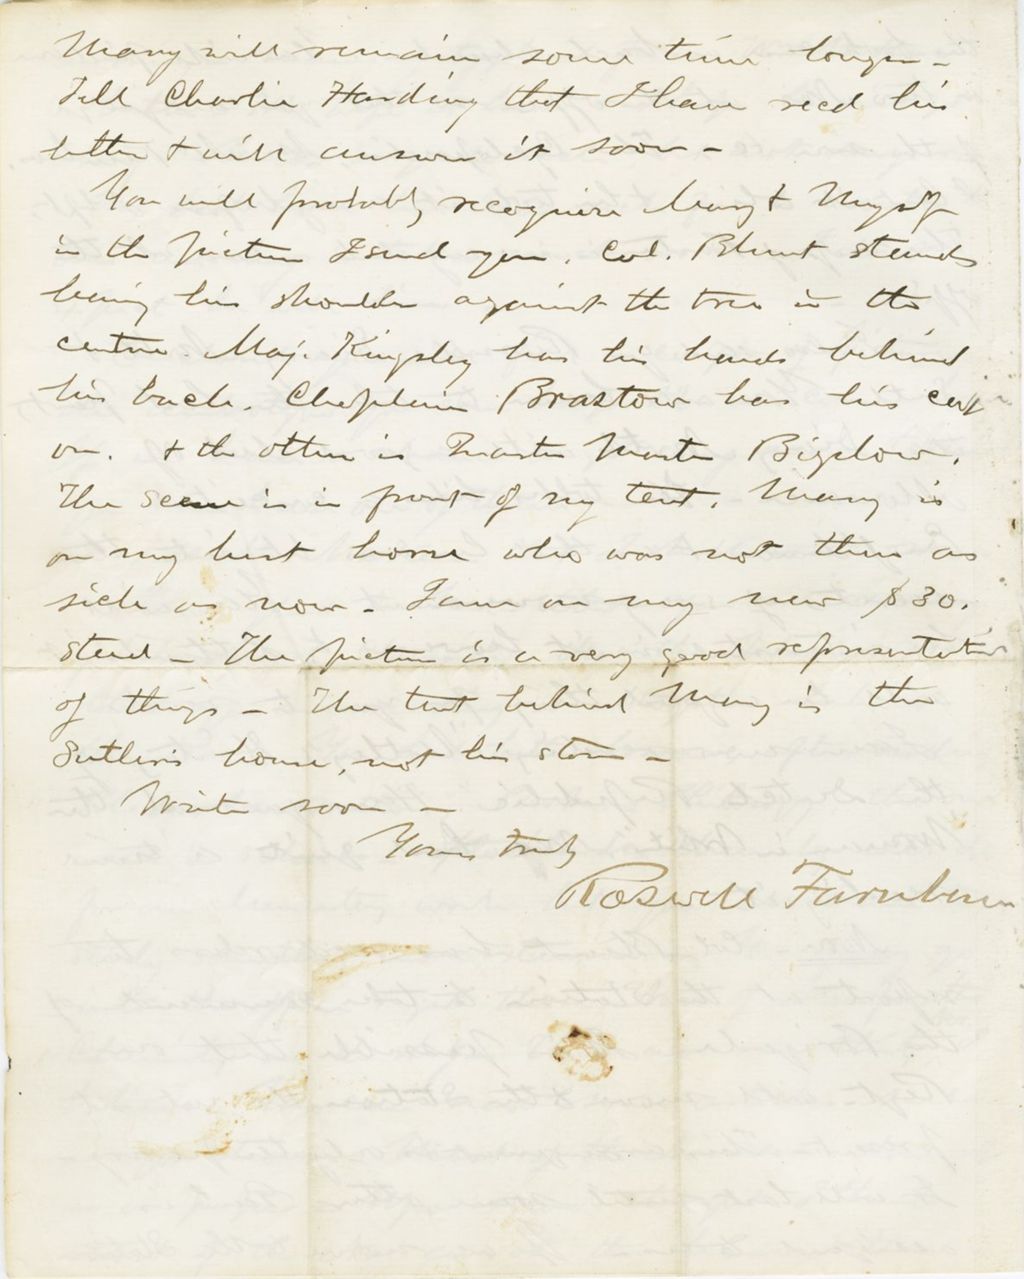 Mary will remain some time longer –
Tell Charlie Harding that I have recd his
letter & will answer it soon –
You will probably recognize Mary & Myself
in the picture I send you. Col. Blunt stands
leaning his shoulder against the tree in the
centre. Maj. Kingsley has his hands behind
his back. Chaplain Brastow has his cap
on. & the other is Quarter Master Bigelow.
The scene is in front of my tent. Mary is
on my best horse who was not then as
sick as now – I am on my new $30.
steed – The picture is a very good representation
of things – The tent behind Mary is the
Sutler's house, not his store –
Write soon –
Yours truly
Roswell Farnham